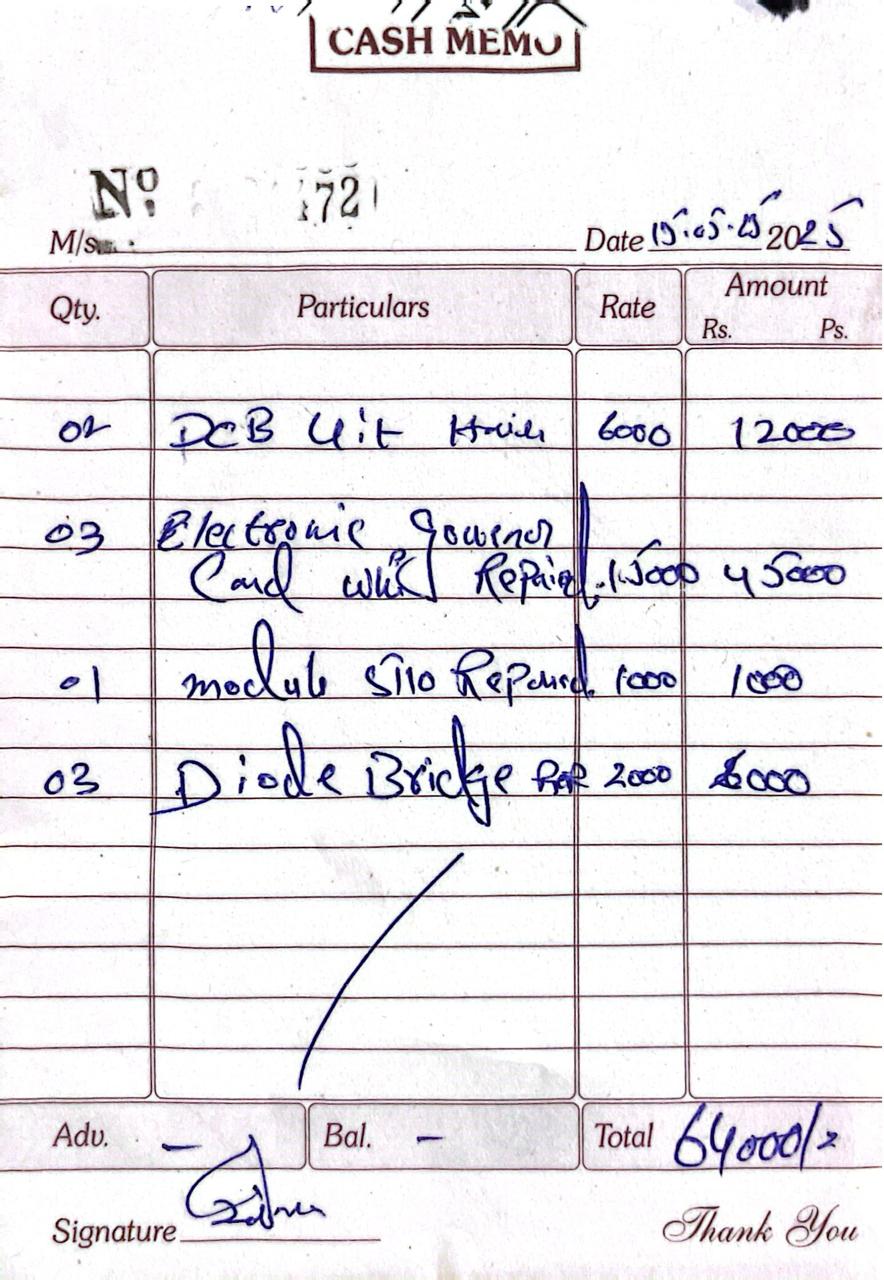 CASH MEMO
No 721
M/s Date 15.05.25 2025
Qty. Particulars Rate Amount
Rs. Ps.
02 DCB 6000 12000
03 Electronic Governor
Card Repaired 15000 45000
01 module 5110 Repaired 1000 1000
03 Diode Bridge 2000 6000
Adv. – Bal. – Total 64000/=
Signature Thank You